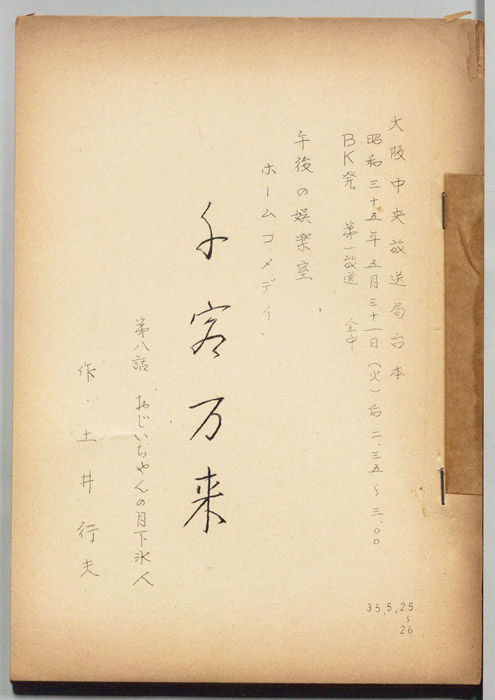 大阪中央放送局台本
昭和三十五年五月三十一日(火)后二.三五~三.〇〇
BK発 第一放送 全中
午後の娯楽室
ホームコメディ、
千客万来
第八話 おじいちゃんの月下氷人
作・土井行夫
35,5,25
~
26